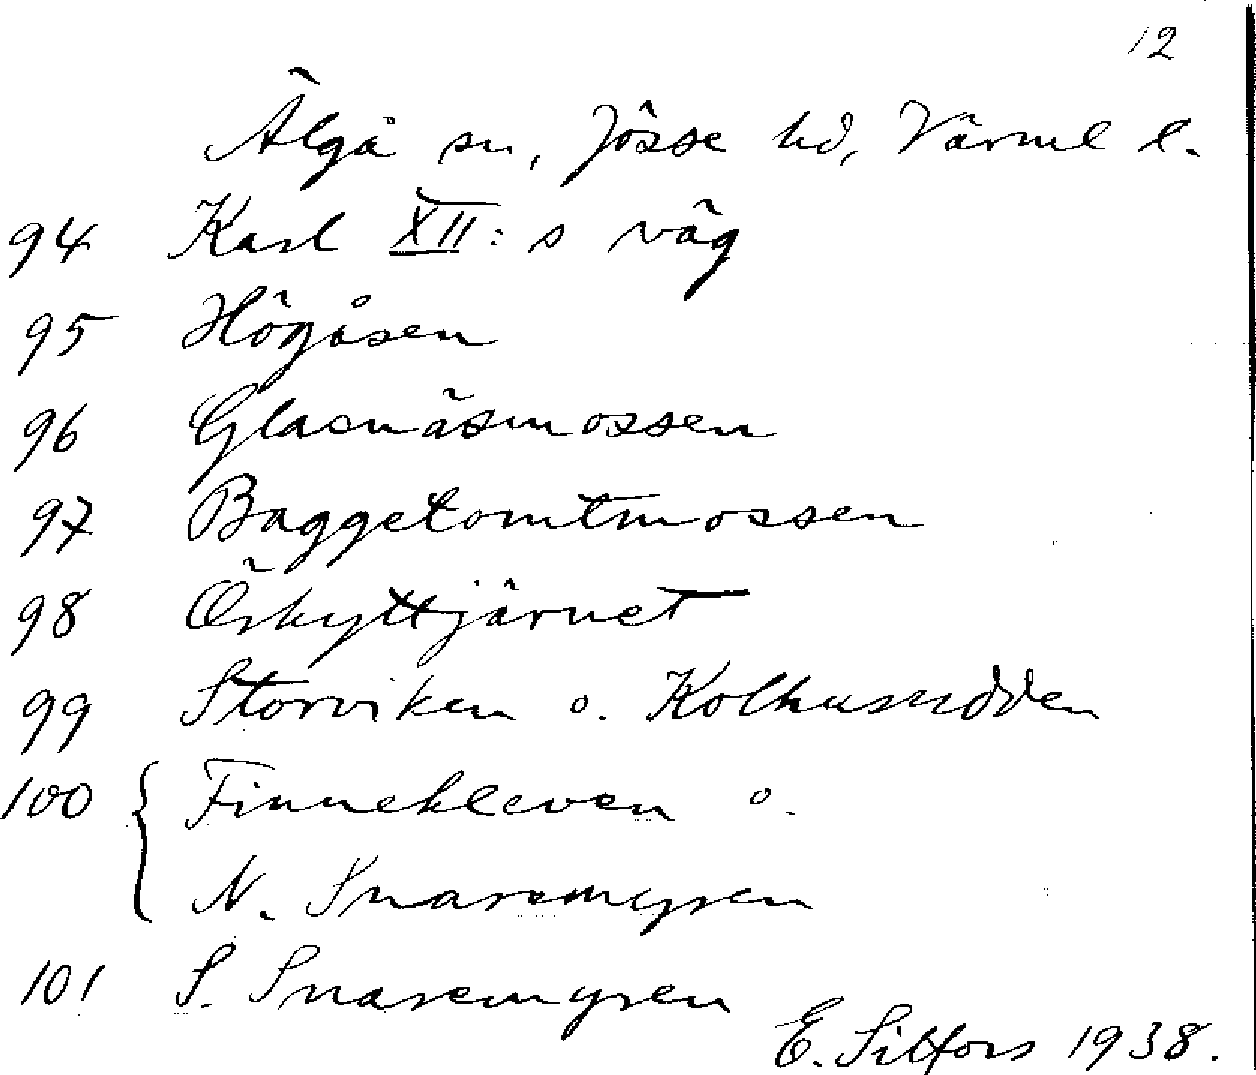 12
Älgå sn, Jösse hd, Värml l.
94 Karl XII:s väg
95 Högåsen
96 Glasnäsmossen
97 Baggetomtmossen
98 Örskyttjärnet
99 Storviken o. Kolhusudden
100 { Finnekleven o.
N. Snaremyren
101 S. Snaremyren
E. 1938.